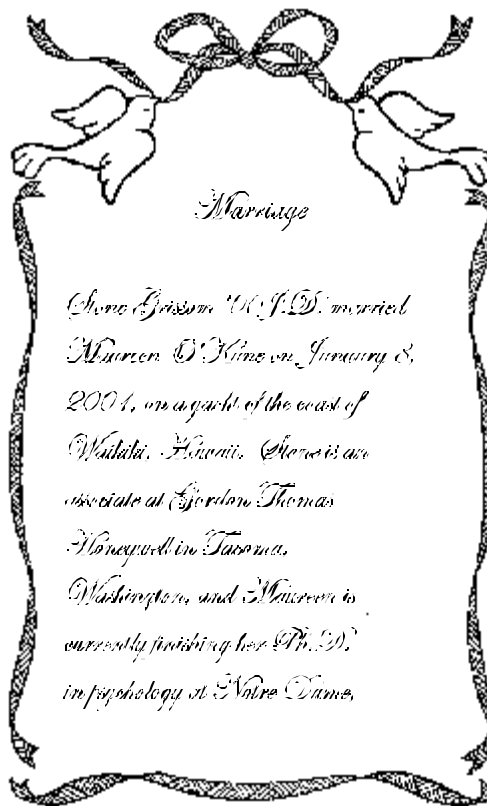 Marriage
Stone Grissom J.D. married
Maureen O'Kane on January 8,
2001, on a yacht of the coast of
Waikiki, Hawaii. Stone is an
associate at Gordon Thomas
Honeywell in Tacoma,
Washington, and Maureen is
currently finishing her Ph.D.
in psychology at Notre Dame.